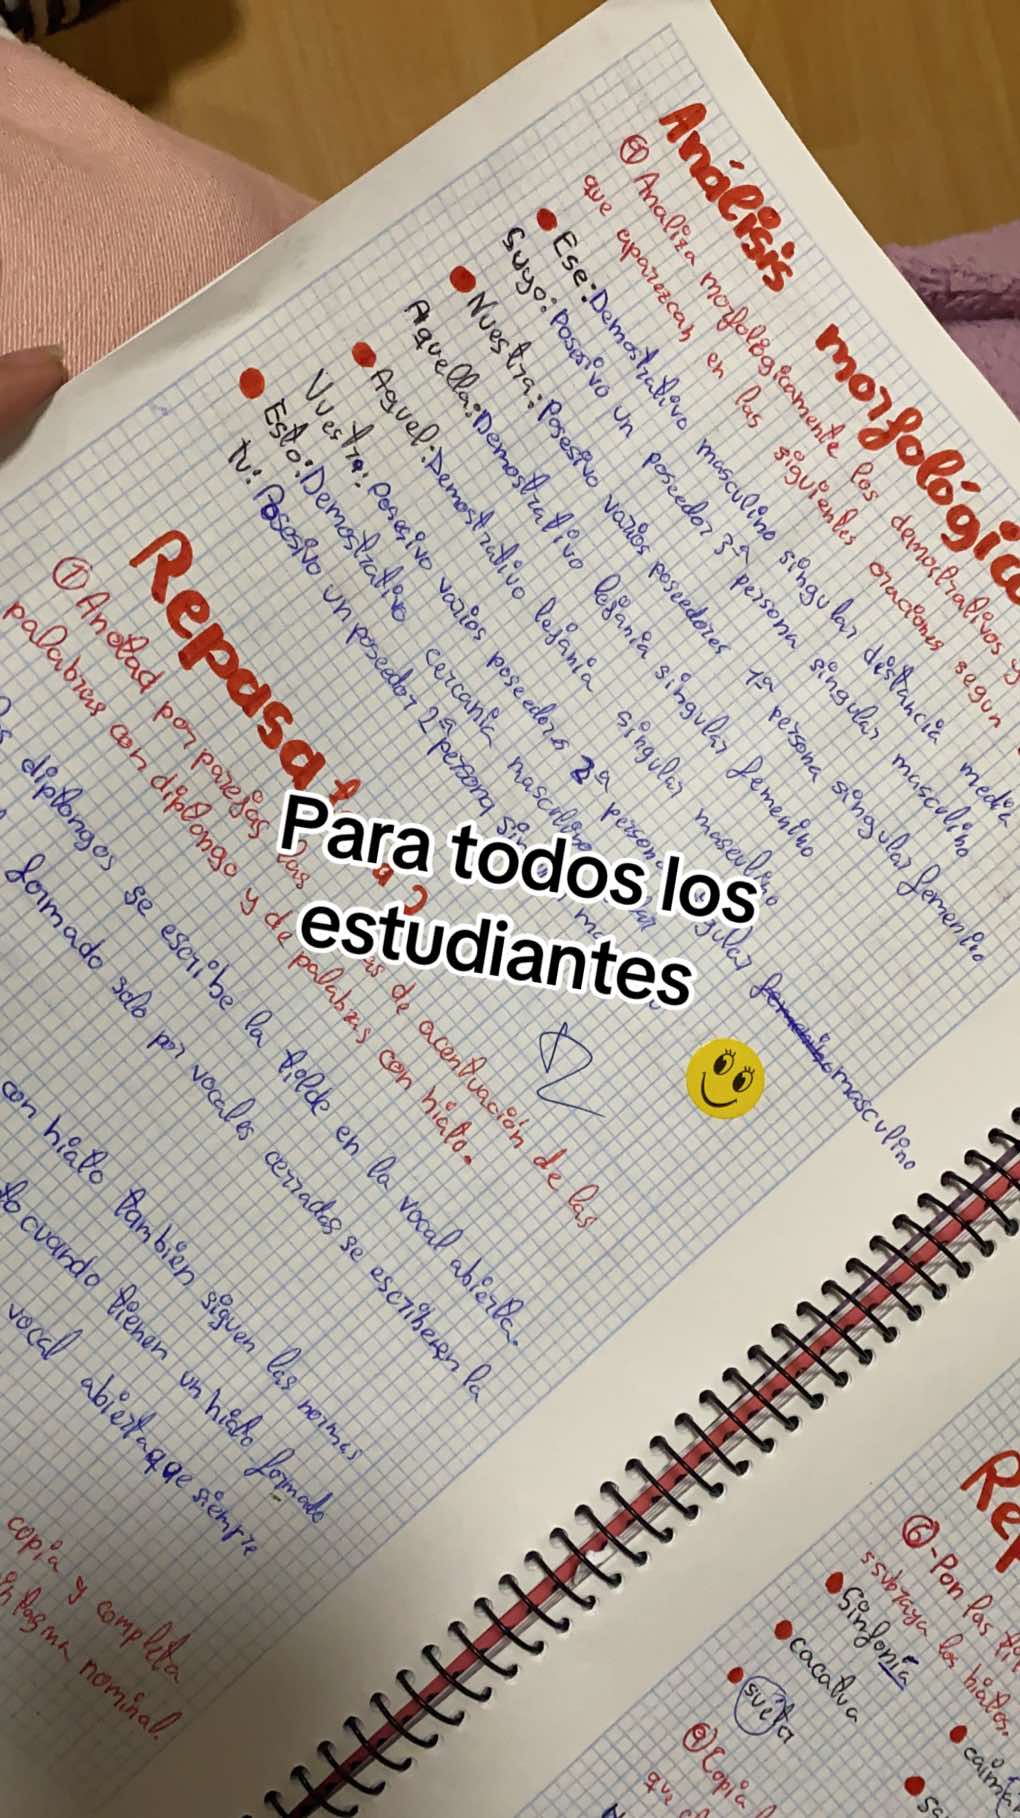 Análisis morfológic
④ Analiza morfológicamente los demostrativos y
que aparezcan en las siguientes oraciones segun
Ese: Demostrativo masculino singular distancia media
Suyo: Posesivo un poseedor 3ª persona singular masculino
Nuestra: Posesivo varios poseedores 1ª persona singular femenino
Aquella: Demostrativo lejanía singular femenino
Aquel: Demostrativo lejanía singular masculino
Vuestra: Posesivo varios poseedores 2ª persona singular femenino masculino
Esto: Demostrativo cercanía masculino
tu: Posesivo un poseedor 2ª persona
Repasa
① Anotad por parejas las de acentuación de las
palabras con diptongo y de palabras con hiato.
diptongos se escribe la tilde en la vocal abierta.
formado solo por vocales cerradas se escriben en la
con hiato también siguen las normas
cuando tienen un hiato formado
vocal abierta que siempre
copia y completa
nominal.
Para todos los
estudiantes
Rep
⑥ - Pon las
subraya los hiatos.
Sinfonía
cacatua
④ Copia
que